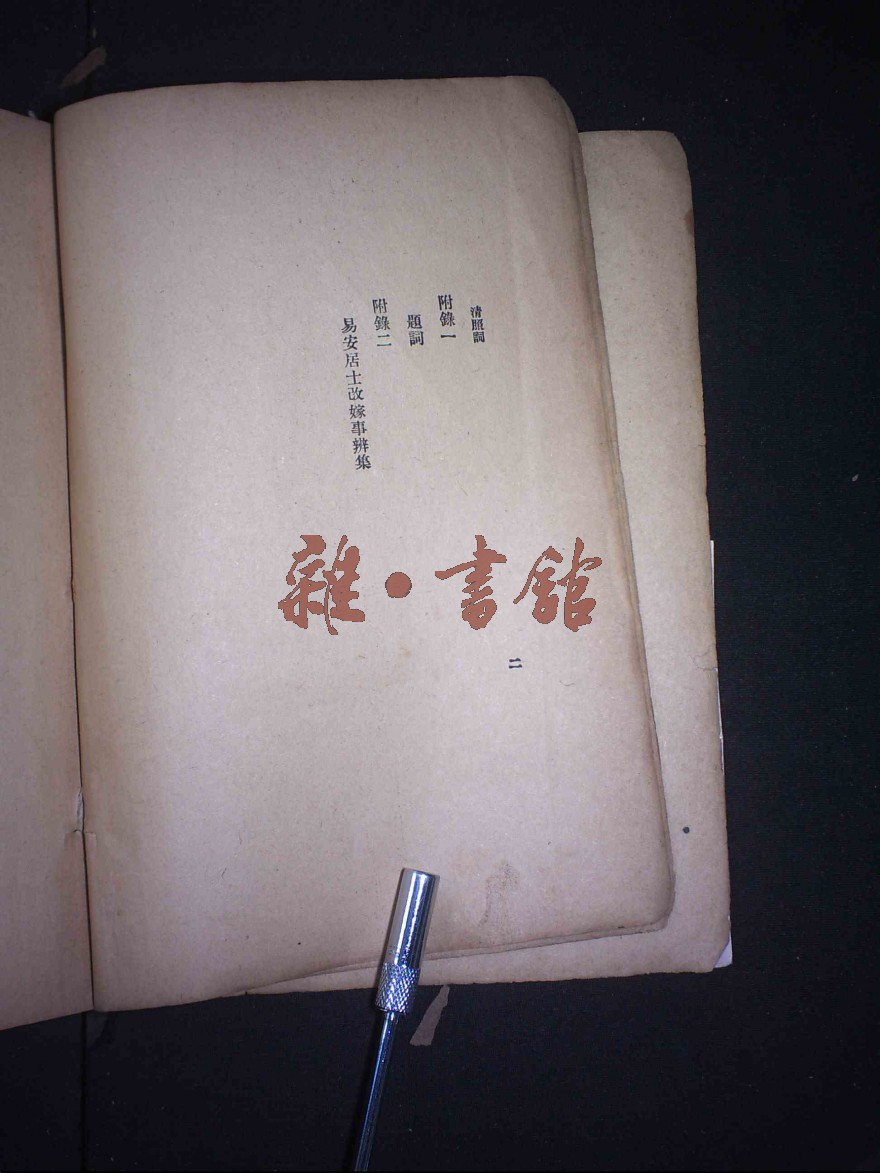 清照詞
附錄一
題詞
附錄二
易安居士改嫁事辨集
二
雜·書館